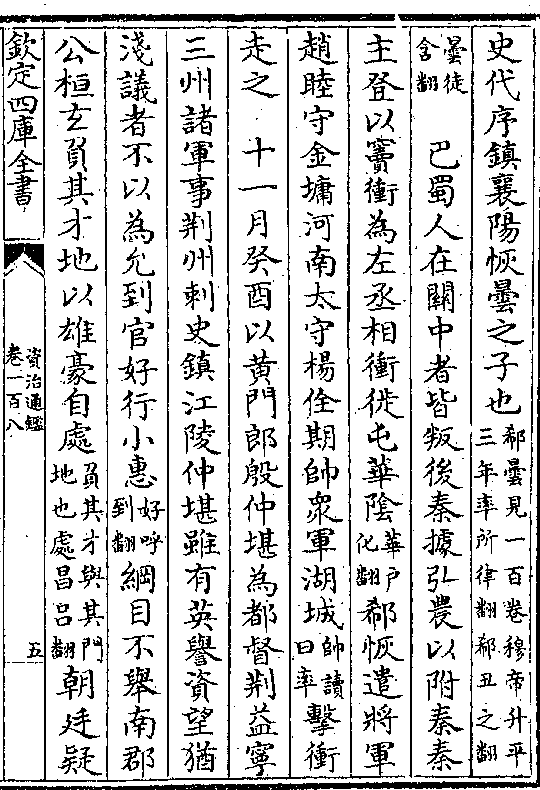 史代序鎮襄陽恢曇之子也郗曇見一百卷穆帝升平三年率所律翻郗丑之翻
曇徒含翻　巴蜀人在關中者皆叛後秦據弘農以附秦秦
主登以竇衝為左丞相衝徙屯華隂華户化翻郗恢遣將軍
趙睦守金墉河南太守楊佺期帥衆軍湖城帥讀曰率擊衝
走之　十一月癸酉以黄門郎殷仲堪為都督荆益寧
三州諸軍事荆州刺史鎮江陵仲堪雖有英譽資望猶
淺議者不以為允到官好行小惠好呼到翻綱目不舉南郡
公桓玄負其才地以雄豪自處負其才與其門地也處昌吕翻朝廷疑
欽定四庫全書
資治通鑑
卷一百八
五